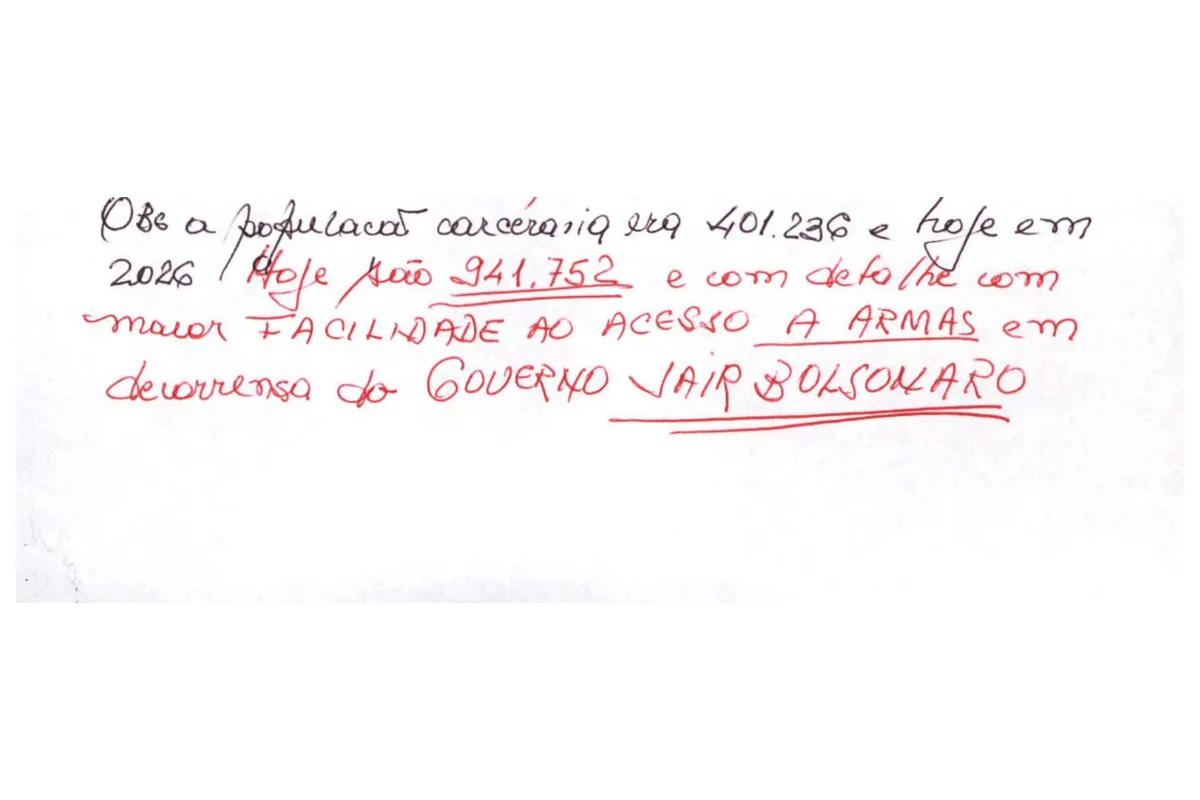 OBS a populacaõ carcéraria era 401.236 e hoje em
2026 / Hoje são 941.752 e com detalhe com
maior FACILIDADE AO ACESSO A ARMAS em
decorrensa do GOVERNO JAIR BOLSONARO